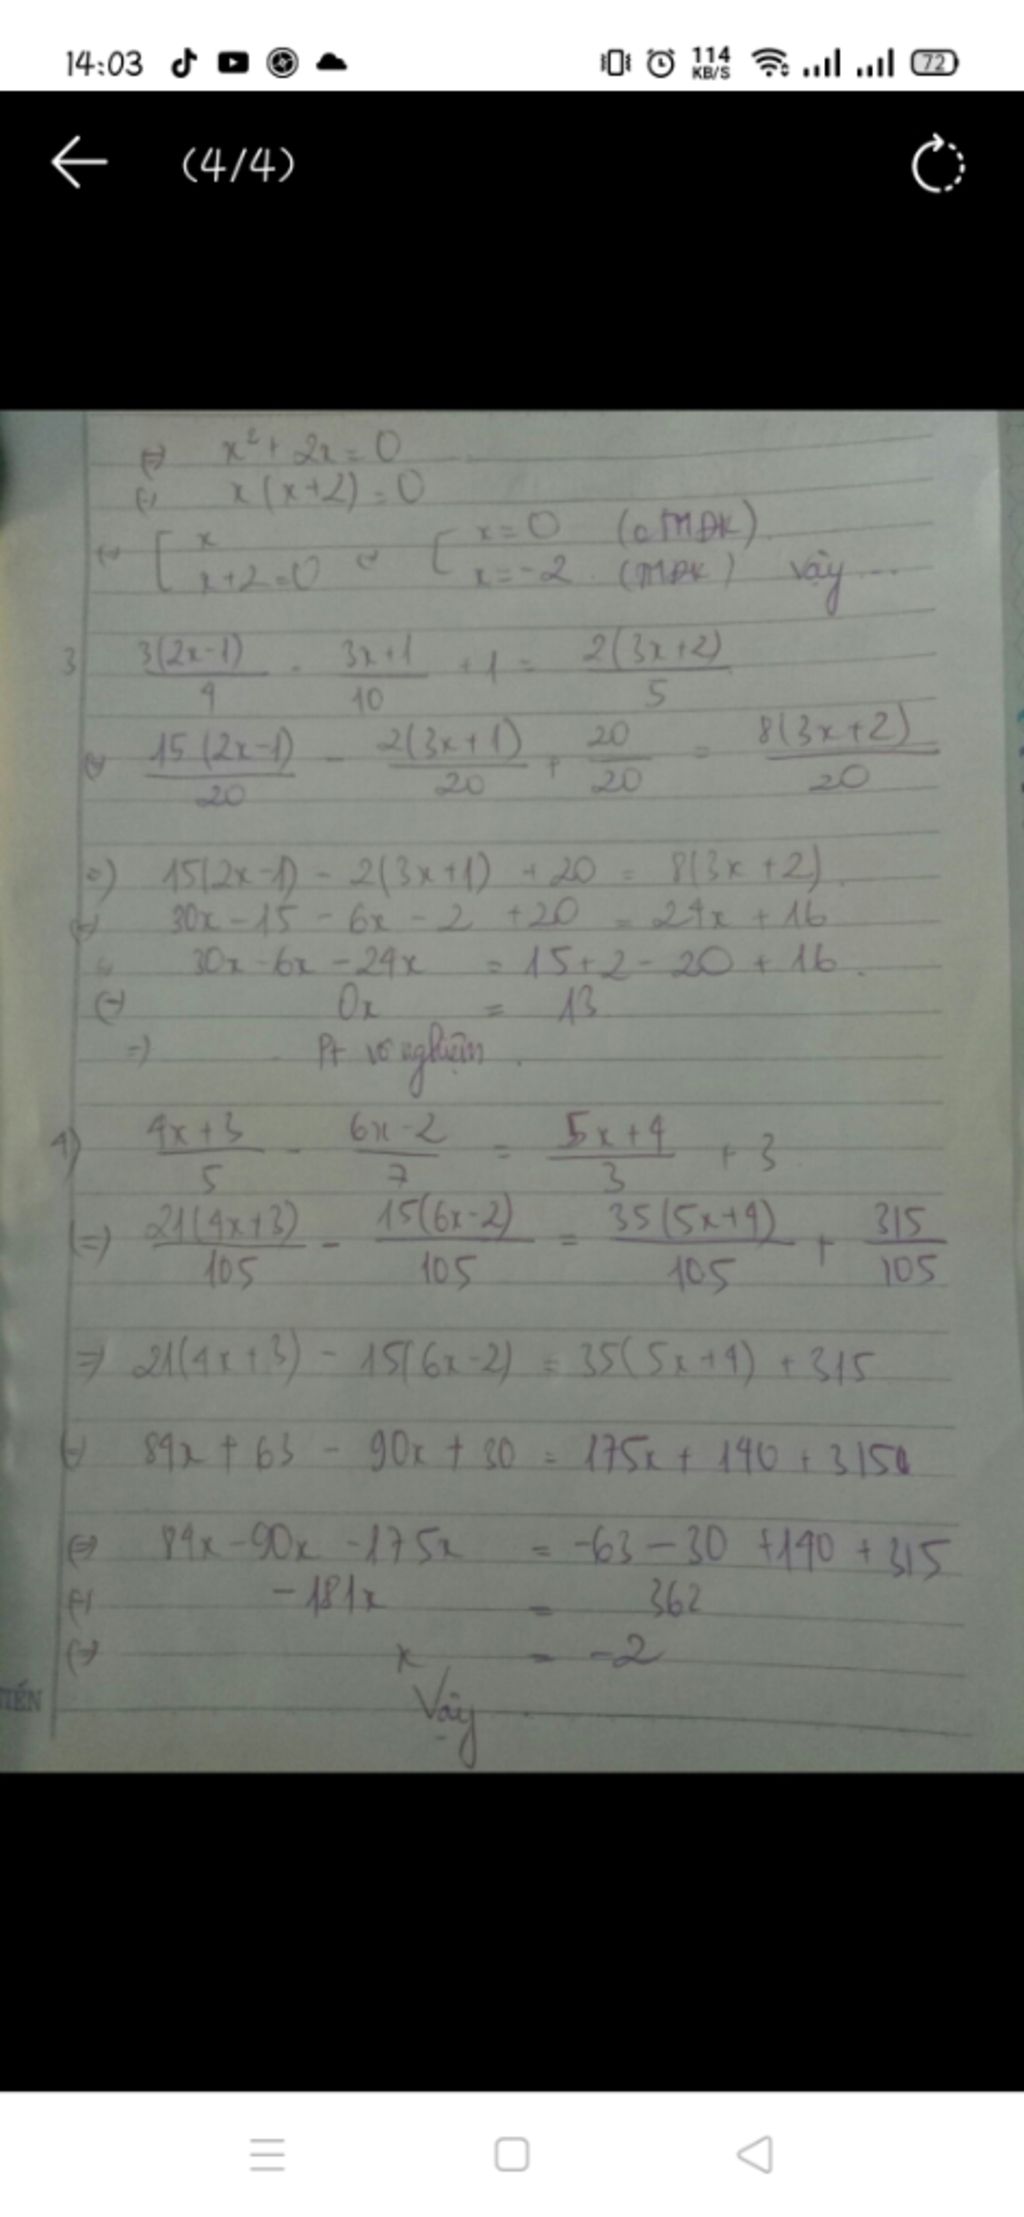 14:03 114 KB/S 72
(4/4)
(=) x² + 2x = 0
(=) x(x+2) = 0
(=) [ x [ x=0 (0TMĐK)
x+2=0 x=-2. (TMĐK) Vậy ...
3 3(2x-1)/4 - 3x+1/10 + 1 = 2(3x+2)/5
(=) 15(2x-1)/20 - 2(3x+1)/20 + 20/20 = 8(3x+2)/20
=) 15(2x-1) - 2(3x+1) + 20 = 8(3x+2).
(=) 30x - 15 - 6x - 2 + 20 = 24x + 16
30x - 6x - 24x = 15 + 2 - 20 + 16.
(=) 0x = 13
=) Pt vô nghiệm.
4) 4x+3/5 - 6x-2/7 = 5x+4/3 + 3
(=) 21(4x+3)/105 - 15(6x-2)/105 = 35(5x+4)/105 + 315/105
=) 21(4x+3) - 15(6x-2) = 35(5x+4) + 315
(=) 84x + 63 - 90x + 30 = 175x + 140 + 315
(=) 84x - 90x - 175x = -63 - 30 + 140 + 315
(=) -181x = 362
(=) x = -2
Vậy
TIẾN